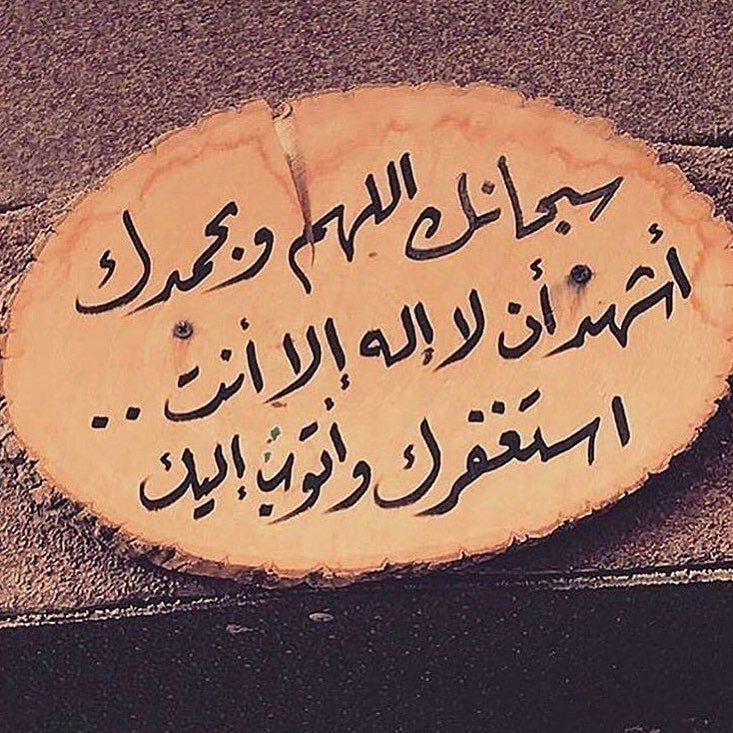 سبحانك اللهم وبحمدك
أشهد أن لا إله إلا أنت ..
استغفرك وأتوب إليك